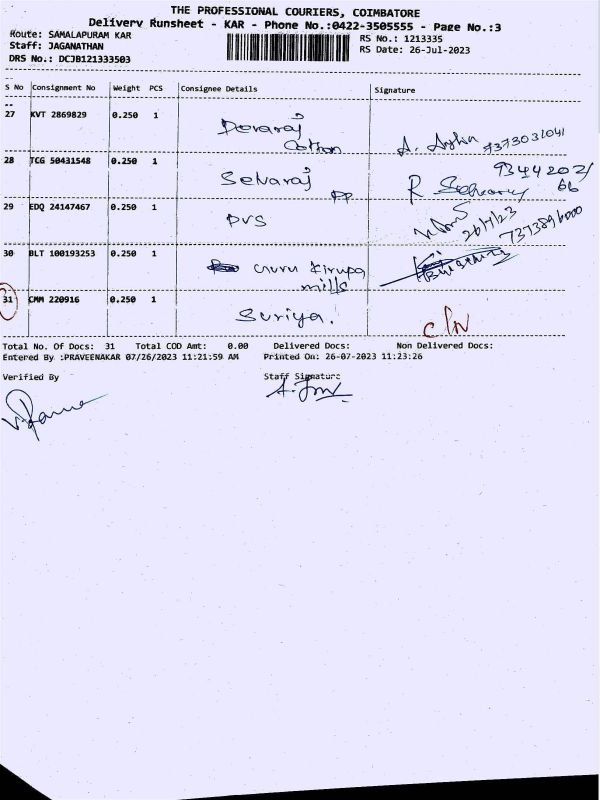 THE PROFESSIONAL COURIERS, COIMBATORE
Delivery Runsheet - KAR - Phone No.:0422-3505555 - Page No.:3
Route: SAMALAPURAM KAR
RS No.: 1213335
Staff: JAGANATHAN
RS Date: 26-Jul-2023
DRS No.: DCJB121333503
S No Consignment No Weight PCS Consignee Details Signature
27 KVT 2869829 0.250 1 Devaraj
Cotton
28 TCG 50431548 0.250 1 Selvaraj PP
29 EDQ 24147467 0.250 1 PVS 26/7/23
30 BLT 100193253 0.250 1 Guru Kirupa
mills
31 CMM 220916 0.250 1 Suriya.
Total No. Of Docs: 31 Total COD Amt: 0.00 Delivered Docs: Non Delivered Docs:
Entered By :PRAVEENAKAR 07/26/2023 11:21:59 AM Printed On: 26-07-2023 11:23:26
Verified By Staff Signature